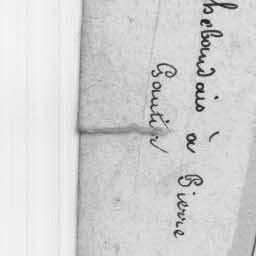 hebaudais à Pierre
Gautier